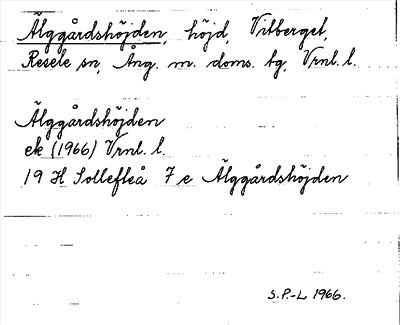 Älggårdshöjden, höjd, Vitberget,
Resele sn, Ång. m. doms. tg, Vrnl. l.
Älggårdshöjden
ek (1966) Vrnl. l.
19 H Sollefteå 7 e Älggårdshöjden
S.P.-L 1966.